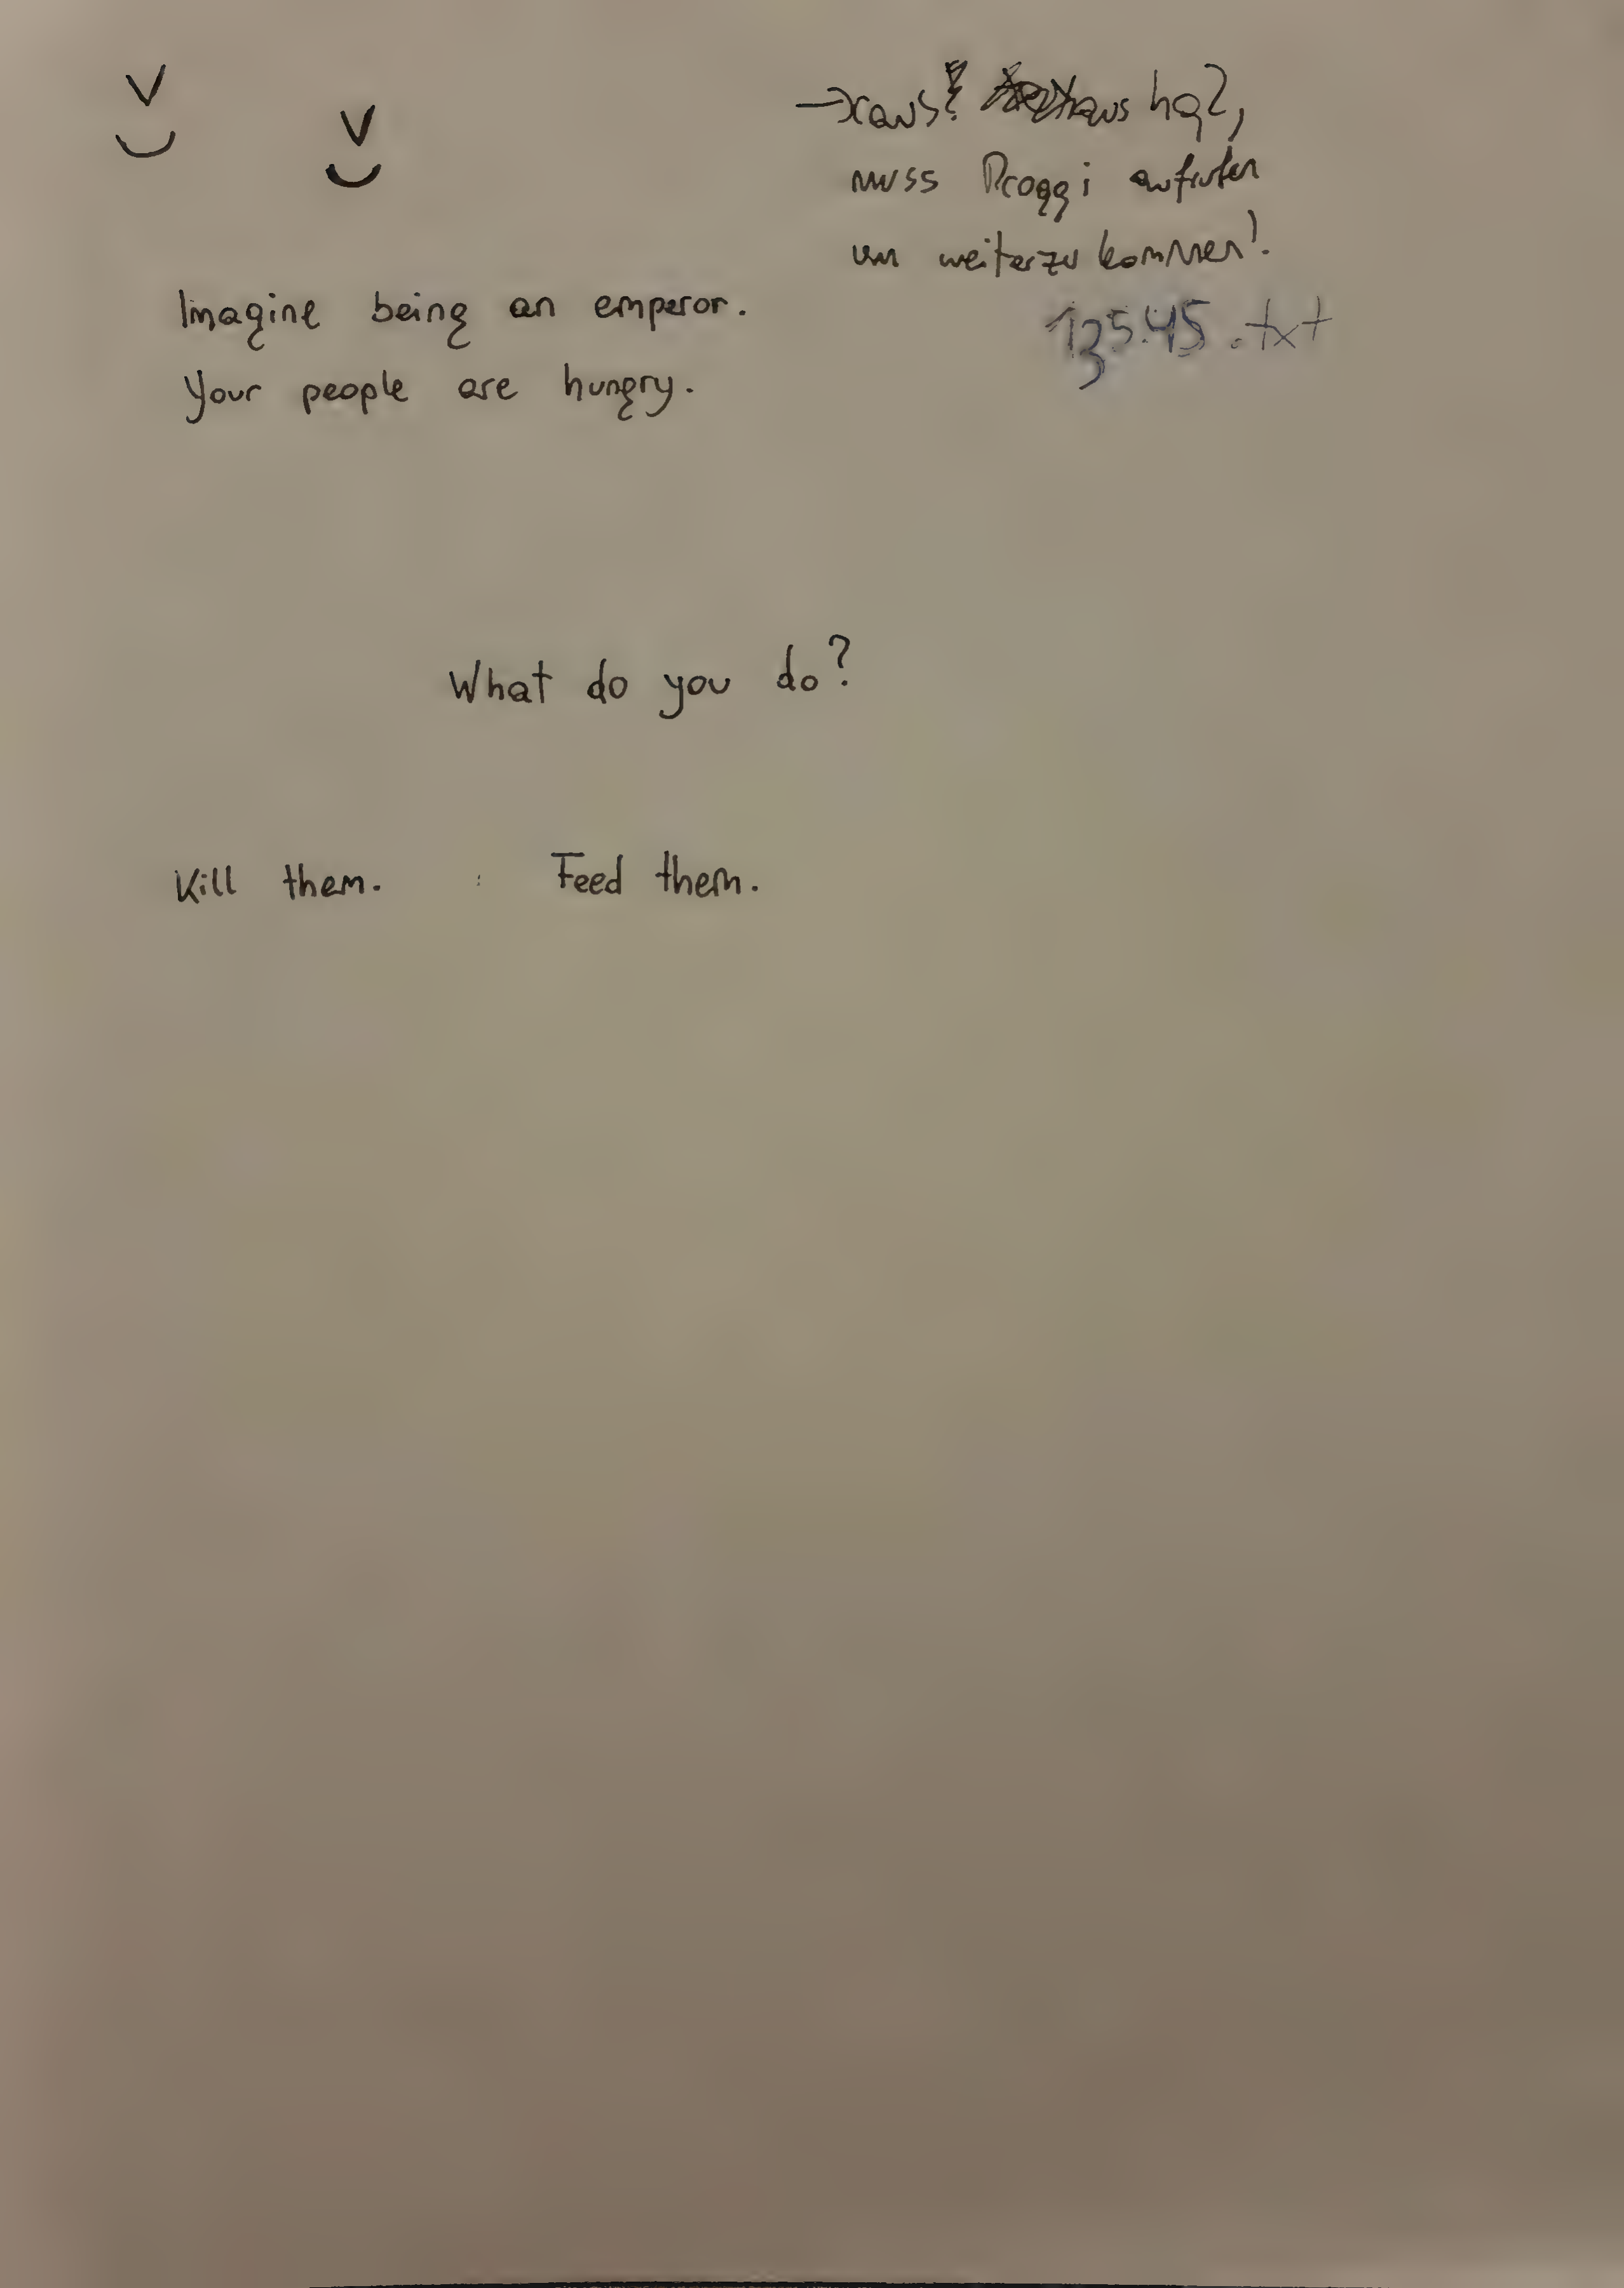 → raus? haus hq2,
muss Proggi aufrufen
um weiterzukommen!
135.45.txt
Imagine being an emperor.
Your people are hungry.
What do you do?
Kill them. Feed them.